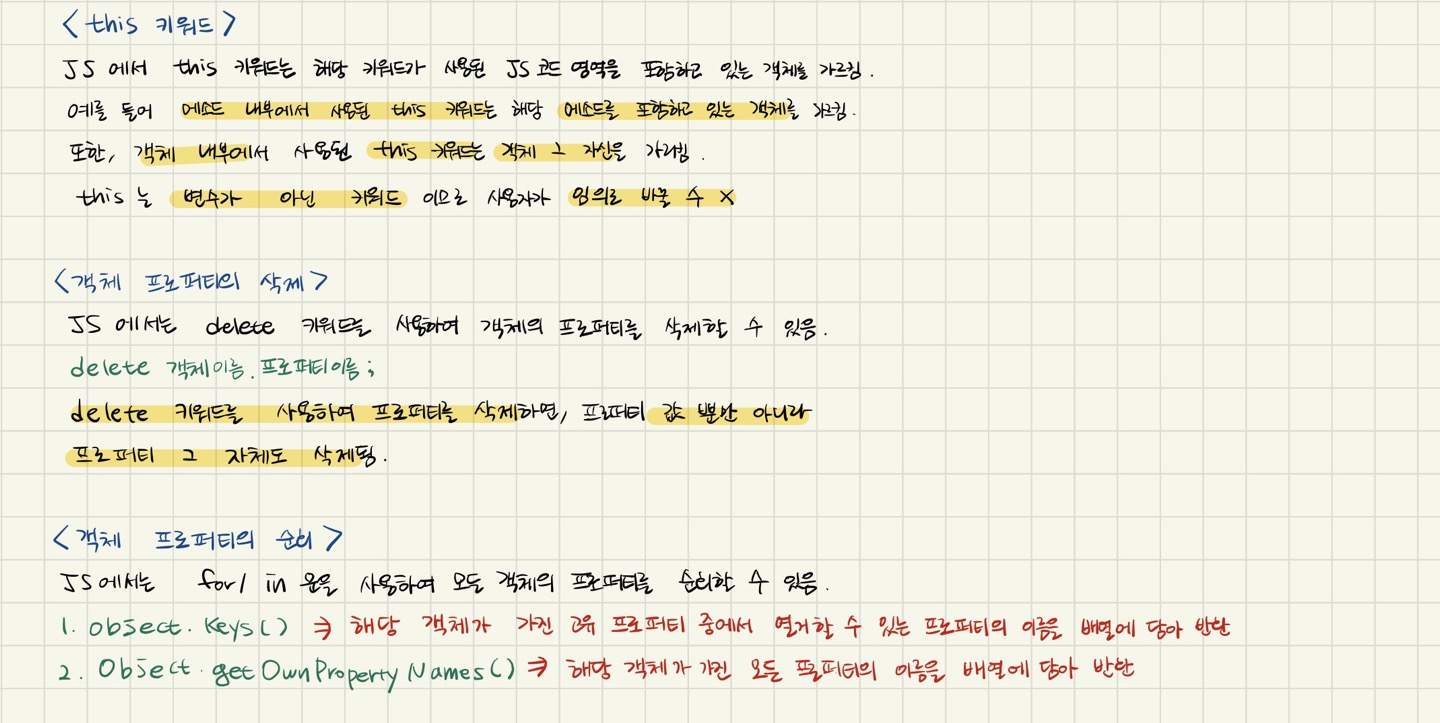 <this 키워드>
JS 에서 this 키워드는 해당 키워드가 사용된 JS 코드 영역을 포함하고 있는 객체를 가르킴.
예를 들어 메소드 내부에서 사용된 this 키워드는 해당 메소드를 포함하고 있는 객체를 가르킴.
또한, 객체 내부에서 사용된 this 키워드는 객체 그 자신을 가리킴.
this 는 변수가 아닌 키워드 이므로 사용자가 임의로 바꿀 수 X
<객체 프로퍼티의 삭제>
JS 에서는 delete 키워드를 사용하여 객체의 프로퍼티를 삭제할 수 있음.
delete 객체이름.프로퍼티이름;
delete 키워드를 사용하여 프로퍼티를 삭제하면, 프로퍼티 값 뿐만 아니라
프로퍼티 그 자체도 삭제됨.
<객체 프로퍼티의 순회>
JS에서는 for/ in 문을 사용하여 모든 객체의 프로퍼티를 순회할 수 있음.
1. object.keys() ⇒ 해당 객체가 가진 고유 프로퍼티 중에서 열거할 수 있는 프로퍼티의 이름을 배열에 담아 반환
2. Object.getOwnPropertyNames() ⇒ 해당 객체가 가진 모든 프로퍼티의 이름을 배열에 담아 반환